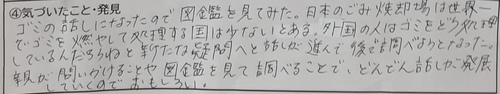 ④気づいたこと・発見
ゴミの話しになったので図鑑を見てみた。日本のごみ焼却場は世界一
でゴミを燃やして処理する国は少ないとある。外国の人はゴミをどう処理
しているんだろうねと新たな疑問へと話しが進んで後で調べようとなった。
親が問いかけることや図鑑を見て調べることで、どんどん話しが発展
していくのでおもしろい。